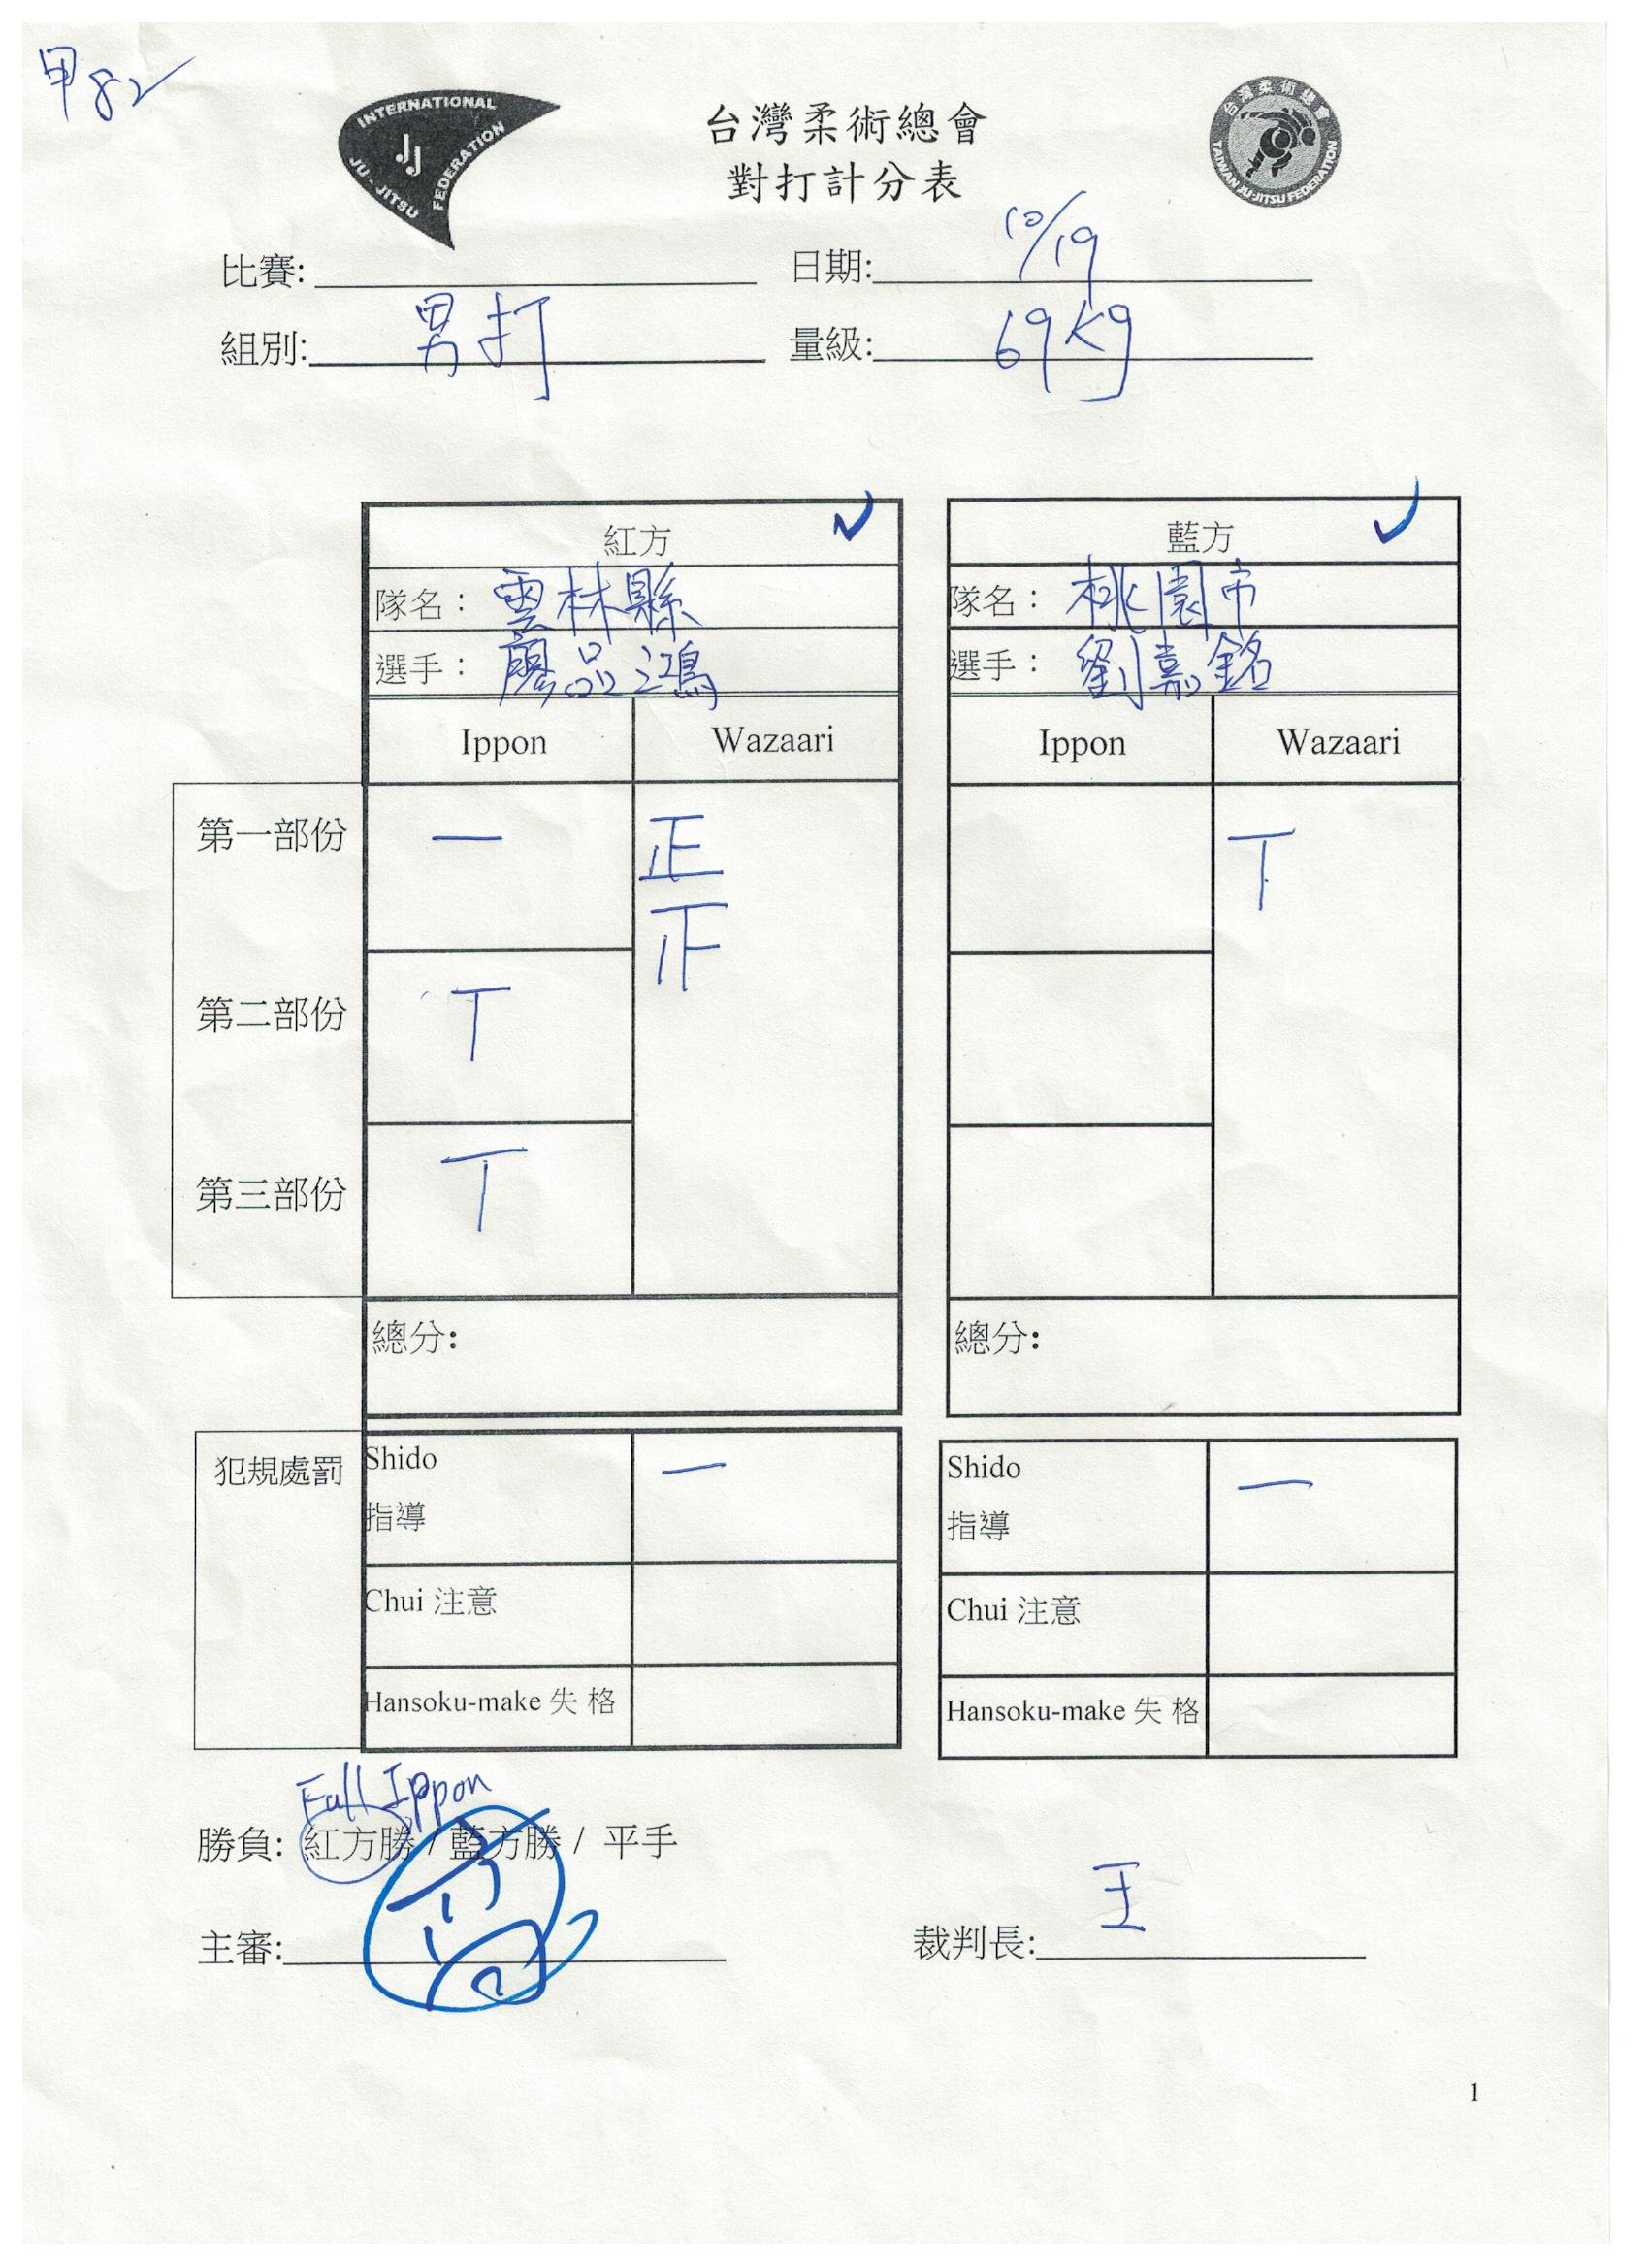 甲82
INTERNATIONAL
JJ
JU-JITSU FEDERATION
台灣柔術總會
TAIWAN JU-JITSU FEDERATION
台灣柔術總會
對打計分表
比賽: 日期: 10/19
組別: 男打 量級: 69kg
紅方 藍方
隊名: 雲林縣 隊名: 桃園市
選手: 廖品鴻 選手: 劉嘉銘
Ippon Wazaari Ippon Wazaari
第一部份 一 正 丅
正
第二部份 丅
第三部份 丅
總分: 總分:
犯規處罰 Shido 一 Shido 一
指導 指導
Chui 注意 Chui 注意
Hansoku-make 失 格 Hansoku-make 失 格
Full Ippon
勝負: 紅方勝 / 藍方勝 / 平手
主審: 裁判長: 王
1